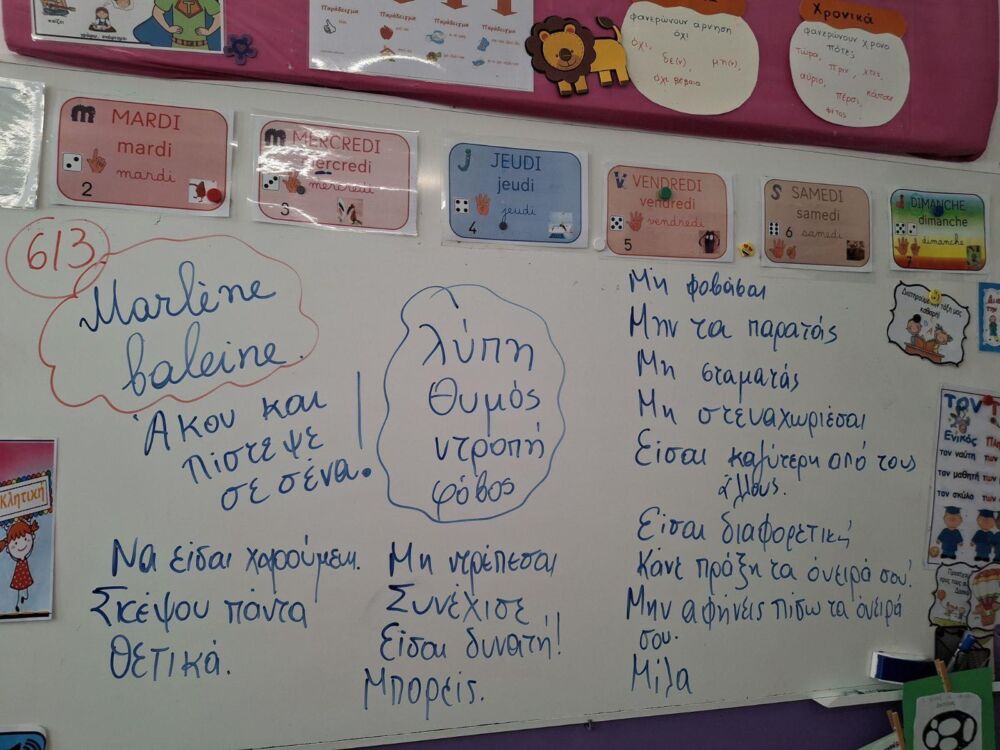 Παράδειγμα
Παράδειγμα
Παράδειγμα
φανερώνουν άρνηση
όχι
όχι,
δε(ν)
μη(ν),
όχι βέβαια
Χρονικά
φανερώνουν χρόνο
πότε;
τώρα, πριν, χτες,
αύριο,
πέρσι,
κάποτε
φέτος
m MARDI
mardi
mardi
2
m MERCREDI
mercredi
mercredi
3
J JEUDI
jeudi
jeudi
4
V VENDREDI
vendredi
vendredi
5
S SAMEDI
samedi
6 samedi
DIMANCHE
dimanche
dimanche
7
6/3
Marlène
baleine.
Άκου και
πίστεψε
σε σένα.
λύπη
θυμός
ντροπή
φόβος
Μη φοβάσαι
Μην τα παρατάς
Μη σταματάς
Μη στεναχωριέσαι
Είσαι καλύτερη από τους
άλλους.
Είσαι διαφορετική
Κάνε πράξη τα όνειρά σου!
Μην αφήνεις πίσω τα όνειρά
σου.
Μίλα
Να είσαι χαρούμεν.
Σκέψου πάντα
θετικά.
Μη ντρέπεσαι
Συνέχισε
Είσαι δυνατή!
Μπορείς.
Κλητική
Ενικός
τον ναύτη
των
τον μαθητή
των